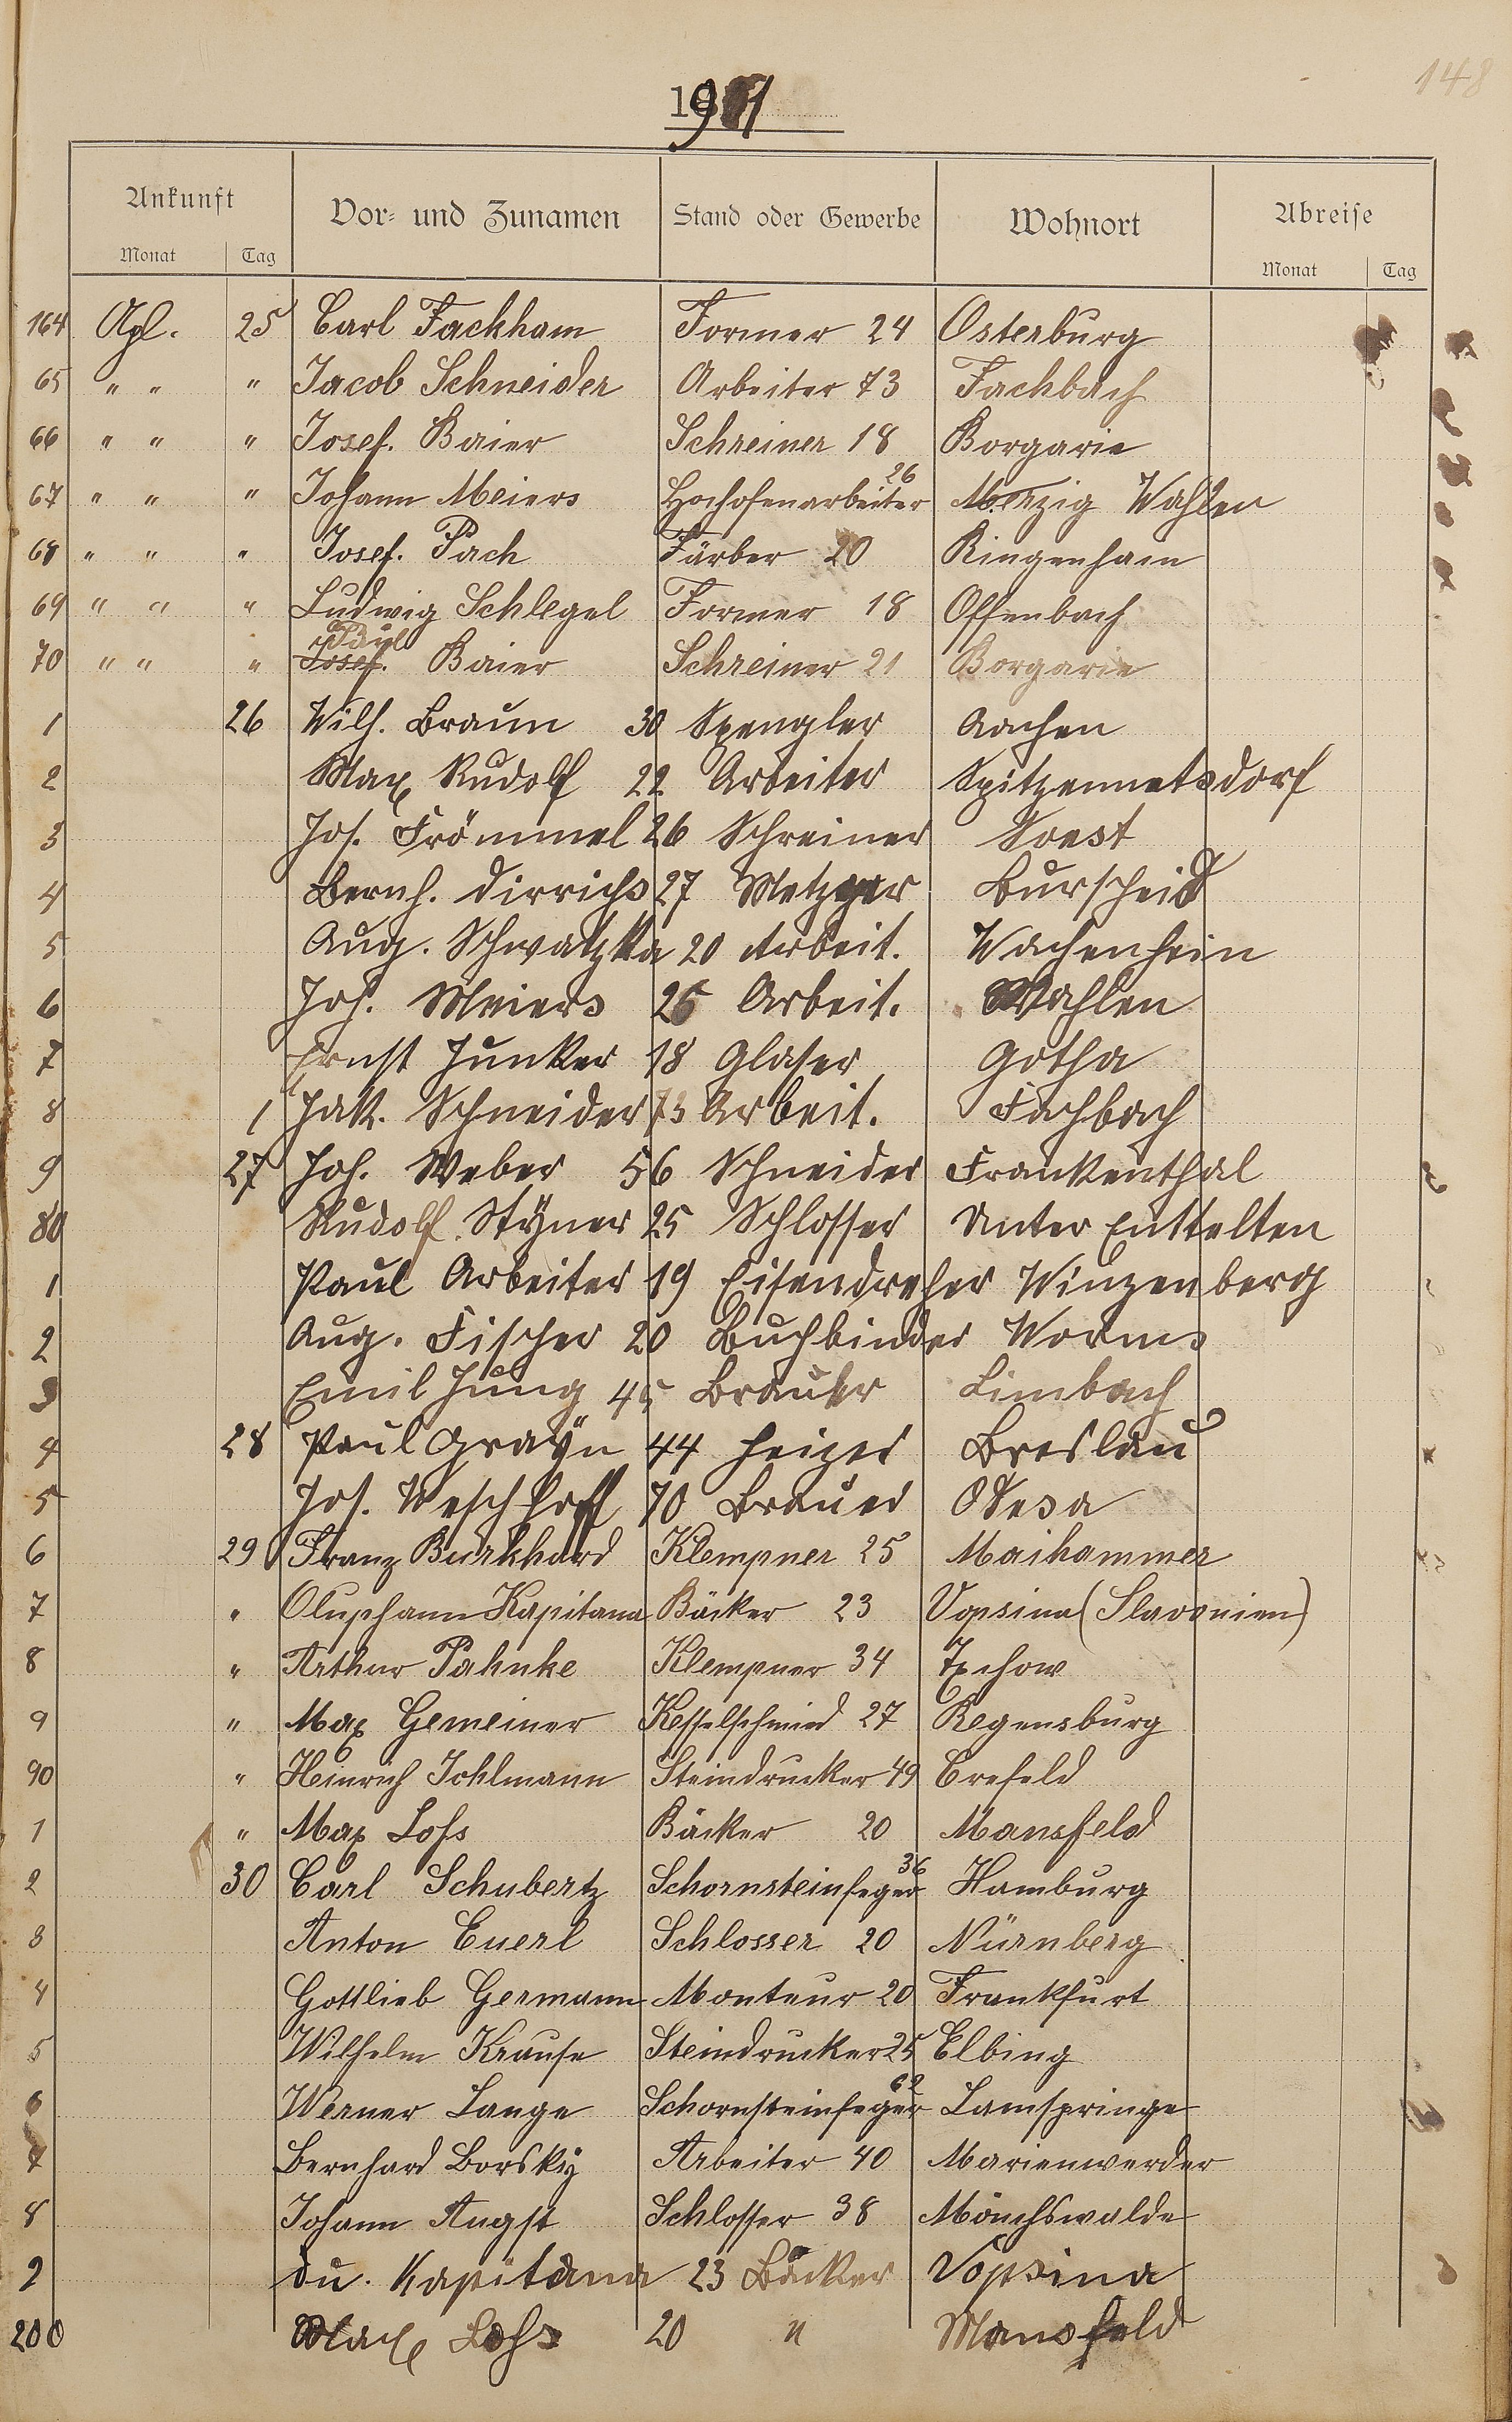 148
1901
Ankunft Vor= und Zunamen Stand oder Gewerbe Wohnort Abreise
Monat Tag Monat Tag
164 Apl. 25 Carl Fackham Former 24 Osterburg
65 " " " Jacob Schneider Arbeiter 73 Fachbach
66 " " " Josef. Baier Schreiner 18 Borgarie
67 " " " Johann Meiers Hochofenarbeiter 26 Merzig Wahlen
68 " " " Josef. Pach Färber 20 Ringenhain
69 " " " Ludwig Schlegel Former 18 Offenbach
70 " " " Josef. Paul Baier Schreiner 21 Borgarie
1 26 Wilh. Braun 30 Spengler Aachen
2 Max Rudolf 22 Arbeiter
3 Jos. Frömmel 26 Schreiner Soest
4 Bernh. Dirrichs 27 Metzger Burscheid
5 Aug. Schwatzka 20 Arbeit. Wachenhein
6 Joh. Meiers 26 Arbeit. Wahlen
7 Ernst Junker 18 Glaser Gotha
8 1 Jak. Schneider 73 Arbeit. Fachbach
9 27 Joh. Weber 56 Schneider Frankenthal
80 Rudolf Styner 25 Schlosser Unter Entfelten
1 Paul Arbeiter 19 Eisendreher Winzenberg
2 Aug. Fischer 20 Buchbinder Worms
3 Emil Jung 45 Brauer Limbach
4 28 Paul Grayn 44 Heizer Breslau
5 Jos. Weschhoff 70 Brauer Odesa
6 29 Franz Burkhard Klempner 25 Maihammer
7 " Oluphann Kapitana Bäcker 23 Vopsina (Slavonien)
8 " Arthur Pahnke Klempner 34
9 " Max Gemeiner Kesselschmied 27 Regensburg
90 " Heinrich Johlmann Steindrucker 49 Crefeld
1 " Max Lohs Bäcker 20 Mansfeld
2 30 Carl Schubertz Schornsteinfeger 36 Hamburg
3 Anton Euerl Schlosser 20 Nürnberg
4 Gottlieb Germann Monteur 20 Frankfurt
5 Wilhelm Krause Steindrucker 25 Elbing
6 Werner Lange Schornsteinfeger 62 Lamspringe
7 Bernhard Borsky Arbeiter 40 Marienwerder
8 Johann Augst Schlosser 38 Mönchswalde
9 Kapitana 23 Bäcker Vopsina
200 Max Lohs 20 " Mansfeld